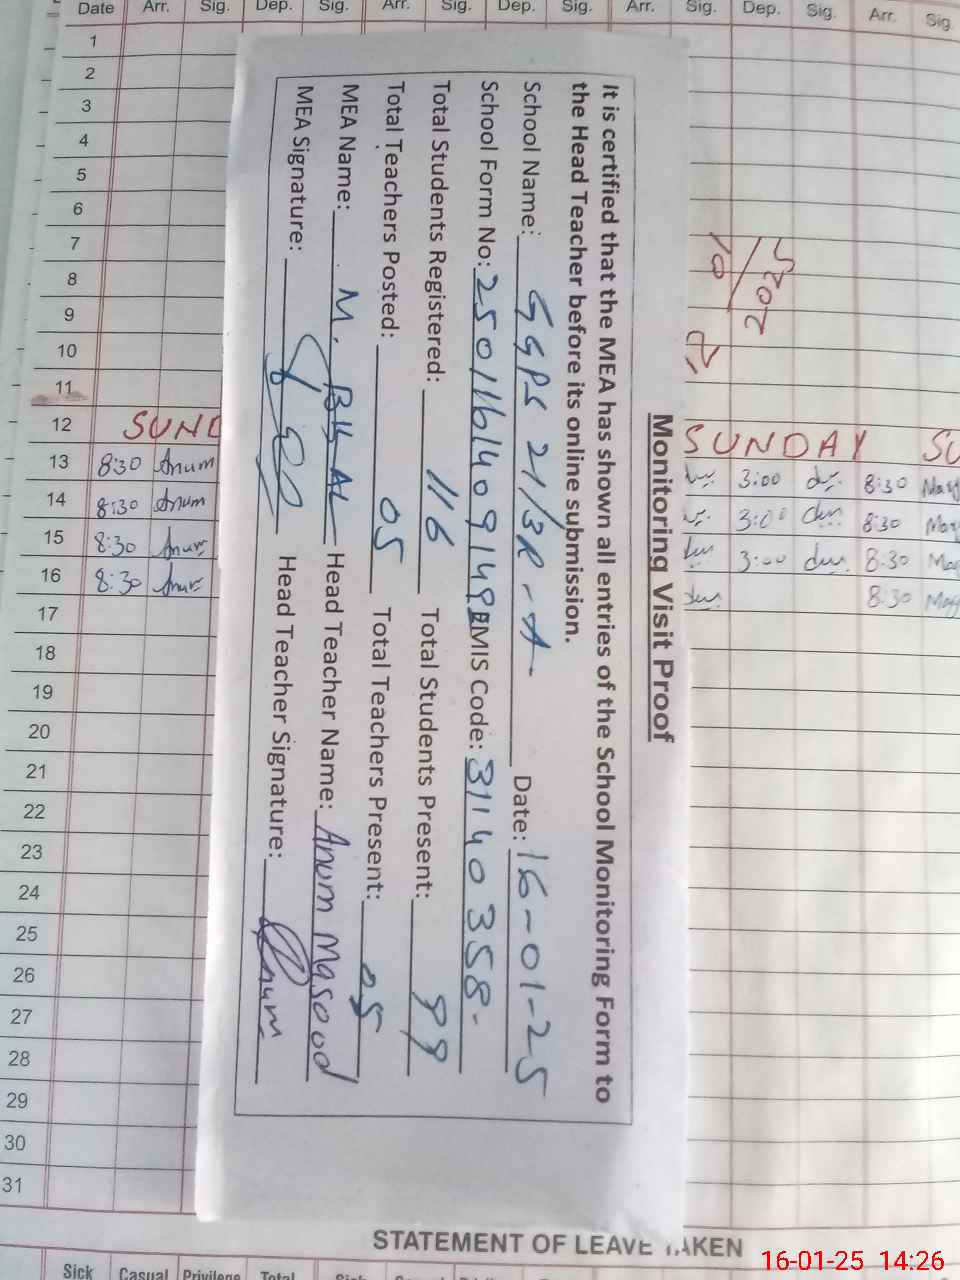 Date Arr. Sig. Dep. Sig. Arr. Sig. Dep. Sig. Arr. Sig. Dep. Sig. Arr. Sig.
1
2
3
4
5
6
7
8
9
10
11
12 SUND SUNDAY SU
13 8:30 Anum 3:00 8:30
14 8:30 Anum 3:00 8:30
15 8:30 Anum 3:00 8:30
16 8:30 Anum 8:30
17
18
19
20
21
22
23
24
25
26
27
28
29
30
31
2025
Monitoring Visit Proof
It is certified that the MEA has shown all entries of the School Monitoring Form to
the Head Teacher before its online submission.
School Name: GGPS 21/3R-A Date: 16-01-25
School Form No: EMIS Code: 31140358-
Total Students Registered: 116 Total Students Present: 99
Total Teachers Posted: 05 Total Teachers Present: 05
MEA Name: M. BILAL Head Teacher Name: Anum Masood
MEA Signature: Head Teacher Signature: Anum
STATEMENT OF LEAVE TAKEN
Sick Casual Privilege Total
16-01-25 14:26